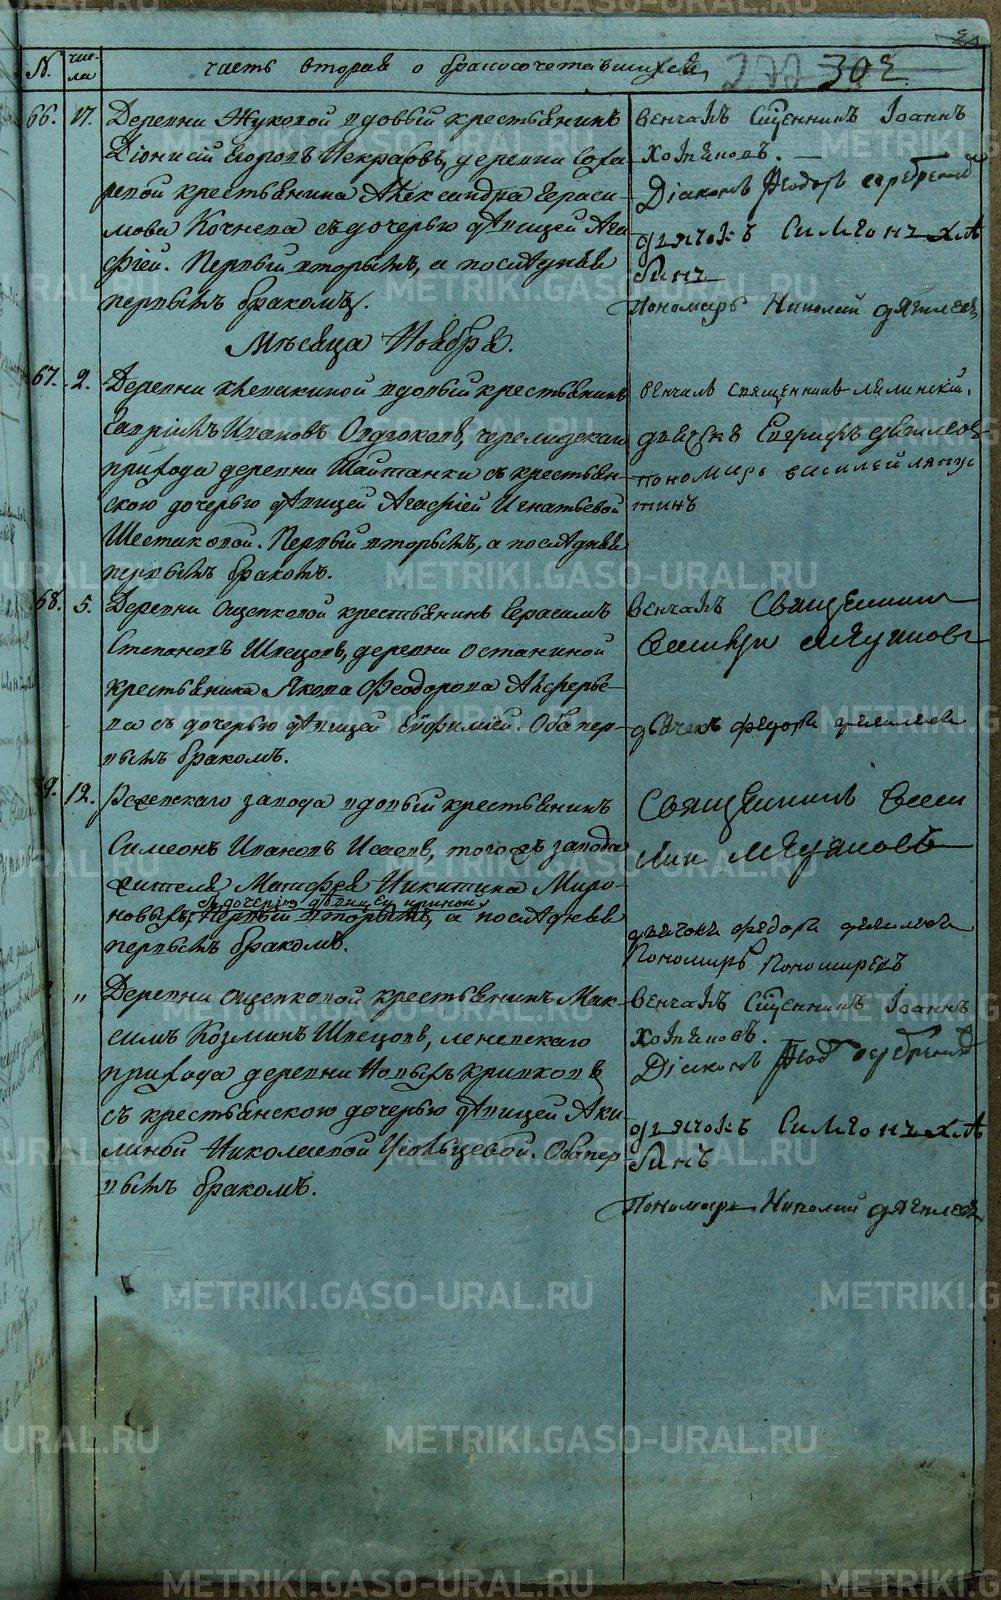 N. числа часть вторая о бракосочетавшихся 302
66. 17. Деревни Жуковой вдовый крестьянинъ
Діонисій Егоровъ Некрасовъ, деревни Соха-
ревой крестьянина Александра Гераси-
мова Кочнева съ дочерью дѣвицей Ага-
фіей. Первый вторымъ, а послѣдняя
первымъ бракомъ.
венчалъ Сщенникъ Іоаннъ
Хотяновъ.
Діаконъ Феодоръ Серебренн
дьячокъ Симеонъ Хлѣ
бинъ
Пономарь Николай Дягилевъ
Мѣсяца Ноября.
67. 2. Деревни вдовый крестьянинъ
Гавріилъ Ивановъ Черемисскаго
прихода деревни Шайтанки съ крестьян-
скою дочерью дѣвицей Агафіей Игнатьевой
Шестаковой. Первый вторымъ, а послѣдняя
первымъ бракомъ.
венчалъ священникъ
дьячекъ
пономарь василей лапус
тинъ
68. 5. Деревни Ощепковой крестьянинъ Герасимъ
Степановъ Швецовъ, деревни Останиной
крестьянина Якова Феодорова Алферье-
ва съ дочерью дѣвицей Евфиміей. Оба пер-
вымъ бракомъ.
венчалъ Священникъ
дьячекъ федоръ
69. 12. Режевскаго завода вдовый крестьянинъ
Симеонъ Ивановъ Исаевъ, того жъ завода
жителя Матфея Никитина Миро-
новыхъ, съ дочерью дѣвицей Ириною
Первый вторымъ, а послѣдняя
первымъ бракомъ.
Священникъ
дьячекъ федоръ
Пономарь Пономаревъ
" Деревни Ощепковой крестьянинъ Мак-
симъ Козминъ Швецовъ, леневскаго
прихода деревни Новыхъ Кривковъ
съ крестьянскою дочерью дѣвицей Аки-
линой Николаевой Усольцевой. Оба пер-
вымъ бракомъ.
венчалъ Сщенникъ Іоаннъ
Хотяновъ.
Діаконъ Феод Серебренн
дьячокъ Симеонъ Хлѣ
бинъ
Пономарь Николай Дягилевъ
METRIKI.GASO-URAL.RU